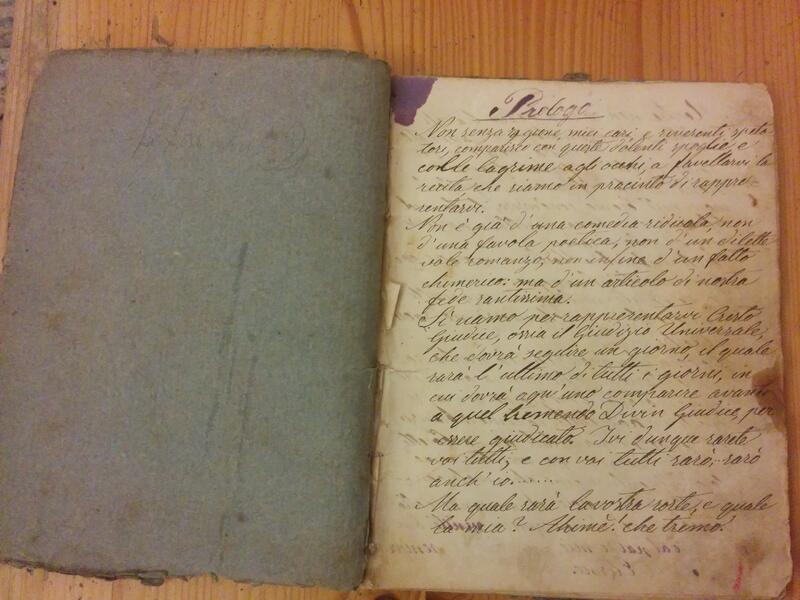 Prologo
Non senza ragione, miei cari, e riverenti spetta
tori, comparisco con queste dolenti spoglie, e
colle lagrime agli occhi, a favellarvi la
recita che siamo in procinto di rappre-
sentarvi.
Non è già d'una comedia ridicola, non
d'una favola poetica, non d'un dilette
vole romanzo, non infine d'un fatto
chimerico: ma d'un articolo di nostra
fede santissima.
Siamo per rappresentarvi Cristo
Giudice, ossia il Giudizio Universale,
che dovrà seguire un giorno, il quale
sarà l'ultimo di tutti i giorni, in
cui dovrà ogn'uno comparire avanti
a quel tremendo Divin Giudice, per
essere giudicato. Ivi dunque sarete
voi tutti, e con voi tutti sarò, sarò
anch'io......
Ma quale sarà la vostra sorte, e quale
la mia? Ahimè! che tremo!